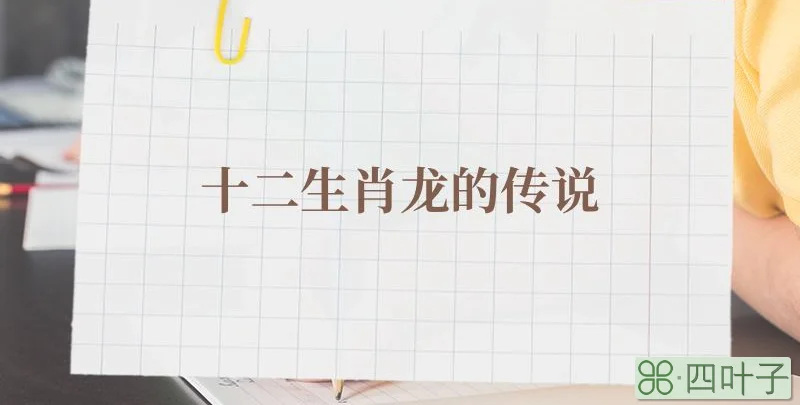 十二生肖龙的传说
四叶子